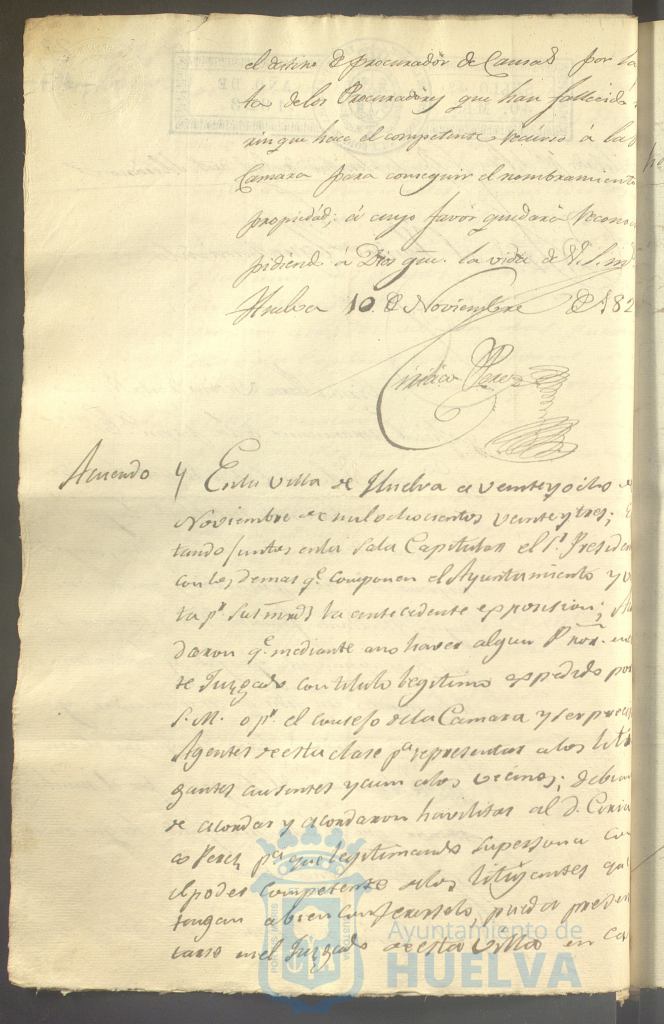 el destino de procurador de Causas por la
ta de los Procuradores que han fallecido
rin que hace el competente recurso á la
Camara para conseguir el nombramiento
propiedad; á cuyo favor quedará recono
pidiendo á Dios gue. la vida de V.S. m
Huelva 10 de Noviembre de 182
Ciriaco Perez
Acuerdo
En la villa de Huelva a veinte y ocho de
Noviembre de mil ochocientos veinte y tres; E
tando juntos en la Sala Capitular el Sr. Presiden
con los demas qe. componen el Ayuntamiento y vis
ta pr. sus mrds la antecedente exposicion; A
daron qe. mediante a no haver algun Pror. en es
te Juzgado con titulo legitimo expedido por
S.M. o pr. el consejo de la Camara y ser preci
Agentes de esta clase pa. representar a los liti
gantes ausentes y aun a los vecinos; debian
de acordar y acordaron havilitar al D. Ciria
co Perez pa. que legitimando su persona con
el poder competente de los litigantes qe
tengan a bien conferirselo, pueda presen
tarse en el Juzgado de esta Villa en ca
Ayuntamiento de
HUELVA